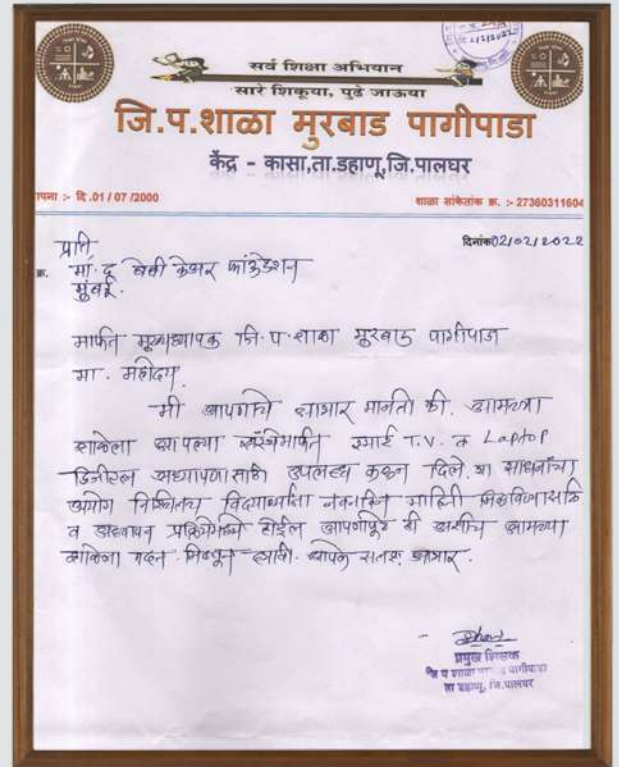 सर्व शिक्षा अभियान
सारे शिकूया, पुढे जाऊया
जि.प.शाळा मुरबाड पागीपाडा
केंद्र - कासा,ता.डहाणू,जि.पालघर
पना :- दि.01 / 07 /2000
शाळा सांकेतांक क्र. :- 27360311604
दिनांक02/02/2022
प्रति,
क्र.
मा. द बेबी केअर फांउडेशन
मुंबई.
मार्फत मुख्याध्यापक जि.प.शाळा मुरबाड पागीपाडा
मा. महोदय,
मी आपणांचे आभार मानतो की, आमच्या
शाळेला आपल्या संस्थेमार्फत स्मार्ट T.V. व Laptop
डिजीटल अध्यापनासाठी उपलब्ध करून दिले. या साधनांचा
उपयोग निश्चितच विद्यार्थ्यांना नवनविन माहिती मिळविण्यासाठी
व अध्यापन प्रक्रियेमध्ये होईल आपणांपुढे ही अशीच आमच्या
शाळेला मदत मिळून द्यावी. आपले शतशः आभार.
प्रमुख शिक्षक
जि प शाळा पागीपाडा
ता डहाणू, जि.पालघर